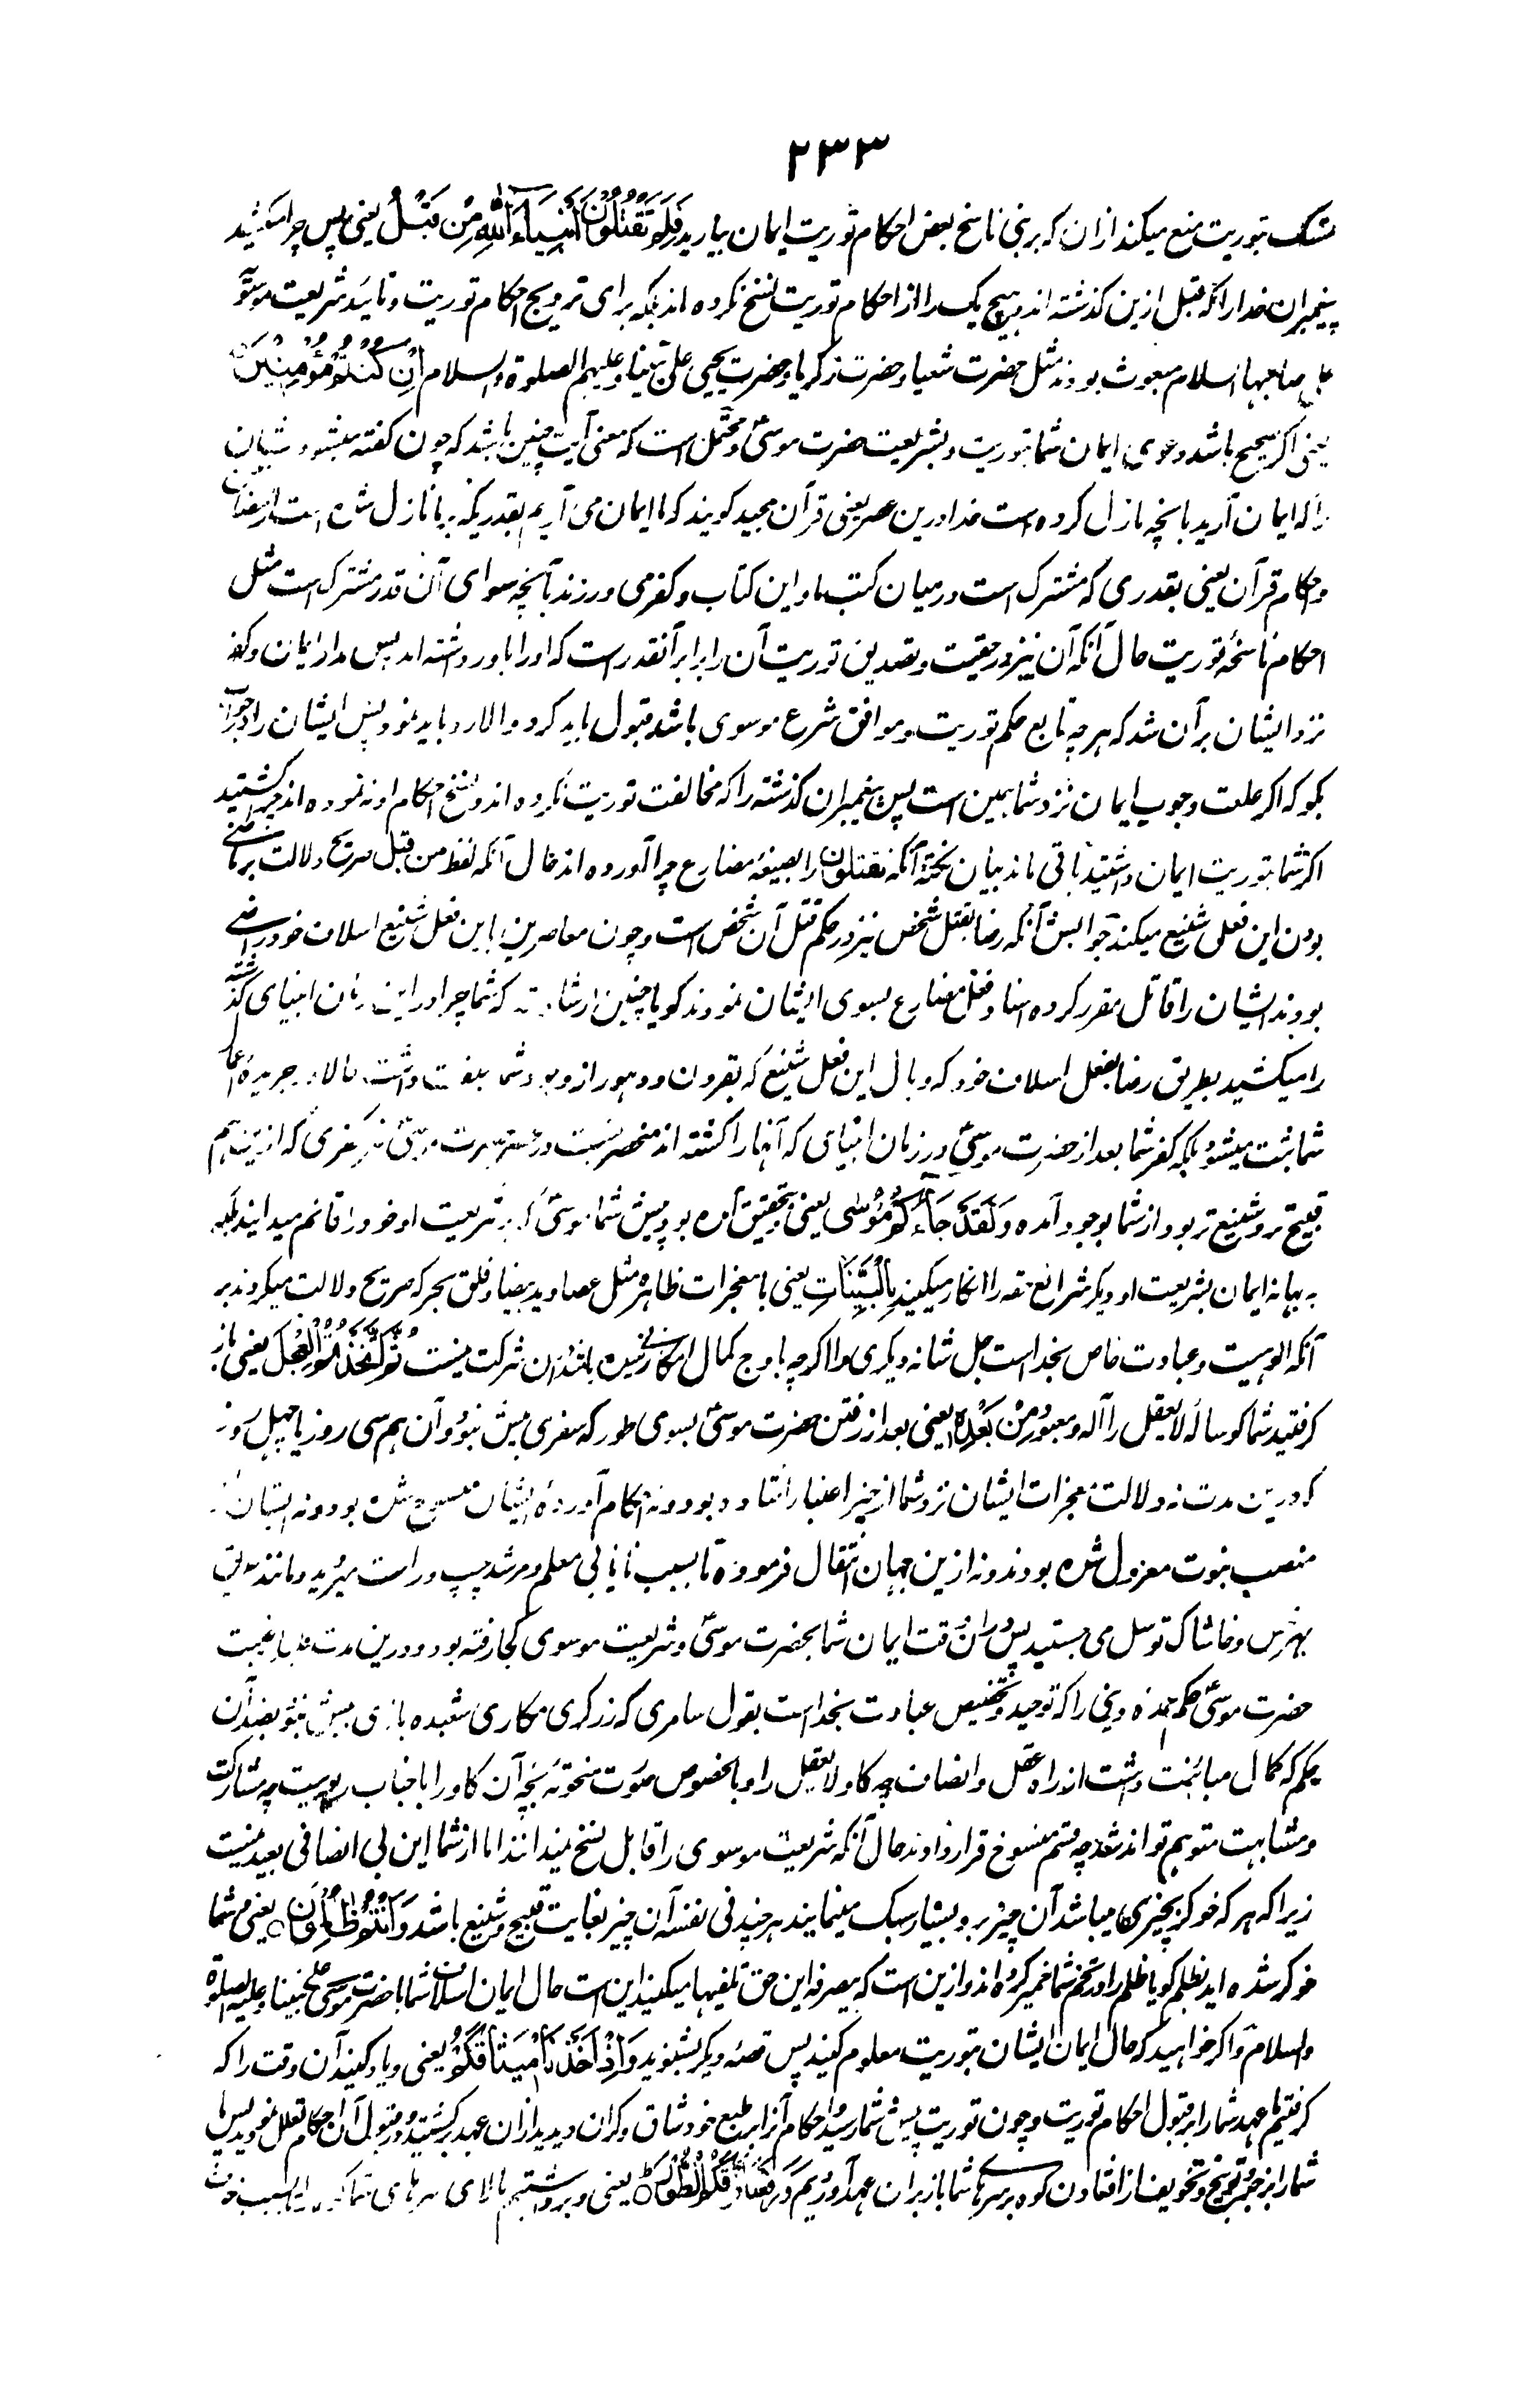 ۲۳۳
تمسک بتوریت منع میکند ازان که بر نبی ناسخ بعض احکام توریت ایمان بیارید فَلِمَ تَقْتُلُوْنَ اَنْبِیَآءَ اللّٰهِ مِنْ قَبْلُ یعنی پس چرا میکشتید
پیغمبران خدا را که قبل ازین گذشته اند و هیچ یک را از احکام توریت نسخ نکرده اند بلکه برای ترویج احکام توریت و تائید شریعت موسوی
علی صاحبها السلام مبعوث بودند مثل حضرت شعیا و حضرت زکریا و حضرت یحیی علی نبینا و علیهم الصلوة والسلام اِنْ كُنْتُمْ مُّؤْمِنِیْنَ
یعنی اگر صحیح باشد دعوی ایمان شما بتوریت و بشریعت حضرت موسیٰ و محتمل است که معنی آیت چنین باشد که چون گفته میشود
را که ایمان آرید بآنچه نازل کرده است خدا درین عصر یعنی قرآن مجید گویند که ما ایمان می آریم بقدریکه بر ما نازل شده است از مضامین
و احکام قرآن یعنی بقدری که مشترک است در میان کتب ما و این کتاب و کفر می ورزند بآنچه سوای آن قدر مشترک است مثل
احکام ناسخهٔ توریت حال آنکه آن نیز در حقیت و تصدیق توریت آن را برابر آنقدر است که او را باور داشته اند پس مدار ایمان و کفر
نزد ایشان بر آن شد که هر چه تابع حکم توریت و موافق شرع موسوی باشد قبول باید کرد و الا رد باید نمود پس ایشان را در جواب
بگو که اگر علت وجوب ایمان نزد شما همین است پس پیغمبران گذشته را که مخالفت توریت نکرده اند و نسخ احکام او نه نموده اند چرا کشتید
اگر شما بتوریت ایمان داشتید باقی ماند بیان نکتهٔ آنکه تقتلون را بصیغهٔ مضارع چرا آورده اند حال آنکه لفظ من قبل صریح دلالت بر ماضی
بودن این فعل شنیع میکند جوابش آنکه رضا بقتل شخص نیز در حکم قتل آن شخص است و چون معاصرین باین فعل شنیع اسلاف خود راضی
بودند ایشان را قاتل مقرر کرده اسناد فعل مضارع بسوی ایشان نمودند گویا چنین ارشاد که شما چرا در این زمان انبیای گذشته
را میکشید بطریق رضا بفعل اسلاف خود که وبال این فعل شنیع که بقرون و دهور از وجود شما سبقت داشت حالا در جریدهٔ اعمال
شما ثبت میشود بلکه کفر شما بعد از حضرت موسیٰ در زمان انبیای که آنها را کشته اند منحصر نیست در حضرت موسیٰ نیز کفری که ازین هم
قبیح تر و شنیع تر بود از شما بوجود آمده وَلَقَدْ جَآءَكُمْ مُّوْسٰی یعنی بتحقیق آمده بود پیش شما موسیٰ که بر شریعت او خود را قائم میدانید بلکه
به بهانه ایمان بشریعت او دیگر شرائع حقه را انکار میکنید بِالْبَیِّنَاتِ یعنی با معجزات ظاهره مثل عصا و ید بیضا و فلق بحر که صریح دلالت میکردند بر
آنکه الوهیت و عبادت خاص بخدا است جل شانه دیگری را اگرچه باوج کمال امکانی رسیده باشد دران شرکت نیست ثُمَّ اتَّخَذْتُمُ الْعِجْلَ یعنی باز
گرفتید شما گوساله لایعقل را آله و معبود مِنْ بَعْدِهٖ یعنی بعد از رفتن حضرت موسیٰ بسوی طور که سفری بیش نبود و آن هم سی روز یا چهل روز
که درین مدت نه دلالت معجزات ایشان نزد شما از حیز اعتبار افتاده بود و نه احکام آوردهٔ ایشان منسوخ شده بود و نه ایشان از
منصب نبوت معزول شده بودند و نه ازین جهان انتقال فرموده تا بسبب نایابی معلم و مرشد چپ و راست میزدید و مانند غریق
بهر خس و خاشاک توسل می جستید پس دران وقت ایمان شما بحضرت موسیٰ و شریعت موسوی کجا رفته بود و درین مدت غیبت
حضرت موسیٰ حکم عمدهٔ دینی را که توحید و تخصیص عبادت بخداست بقول سامری که زرگری مکاری شعبده بازی بیش نبود بضد آن
حکم که کمال مبائنت داشت از راه عقل و انصاف چه گاو لایعقل را و بالخصوص صورت منحوتهٔ بچه آن گاو را با جناب ربوبیت چه مشارکت
و مشابهت متوهم تواند شد چه قسم منسوخ قرار دادند حال آنکه شریعت موسوی را قابل نسخ نمیدانند اما از شما این بی انصافی بعید نیست
زیرا که هر که خوگر بچیزی میباشد آن چیز بر او بسیار سبک مینماید هر چند فی نفسه آن چیز بغایت قبیح و شنیع باشد وَاَنْتُمْ ظٰلِمُوْنَ یعنی و شما
خوگر شده اید بظلم گویا ظلم را در تخم شما خمیر کرده اند و ازین است که بیصرفه این حق تلفیها میکنید این است حال ایمان اسلاف شما با حضرت موسیٰ علی نبینا و علیه الصلوة
والسلام و اگر خواهید که حال ایمان ایشان بتوریت معلوم کنید پس قصهٔ دیگر بشنوید وَاِذْ اَخَذْنَا مِیْثَاقَكُمْ یعنی و یاد کنید آن وقت را که
گرفتیم ما عهد شما را بر قبول احکام توریت و چون توریت پیش شما رسید و احکام آنرا بر طبع خود شاق و گران دیدید ازان عهد برگشتید و در قبول آن احکام تعلل نمودید پس ما
شما را بزجر و توبیخ و تخویف از افتادن کوه بر سرهای شما باز بران عهد آوردیم وَرَفَعْنَا فَوْقَكُمُ الطُّوْرَ یعنی و برداشتیم بالای سرهای شما